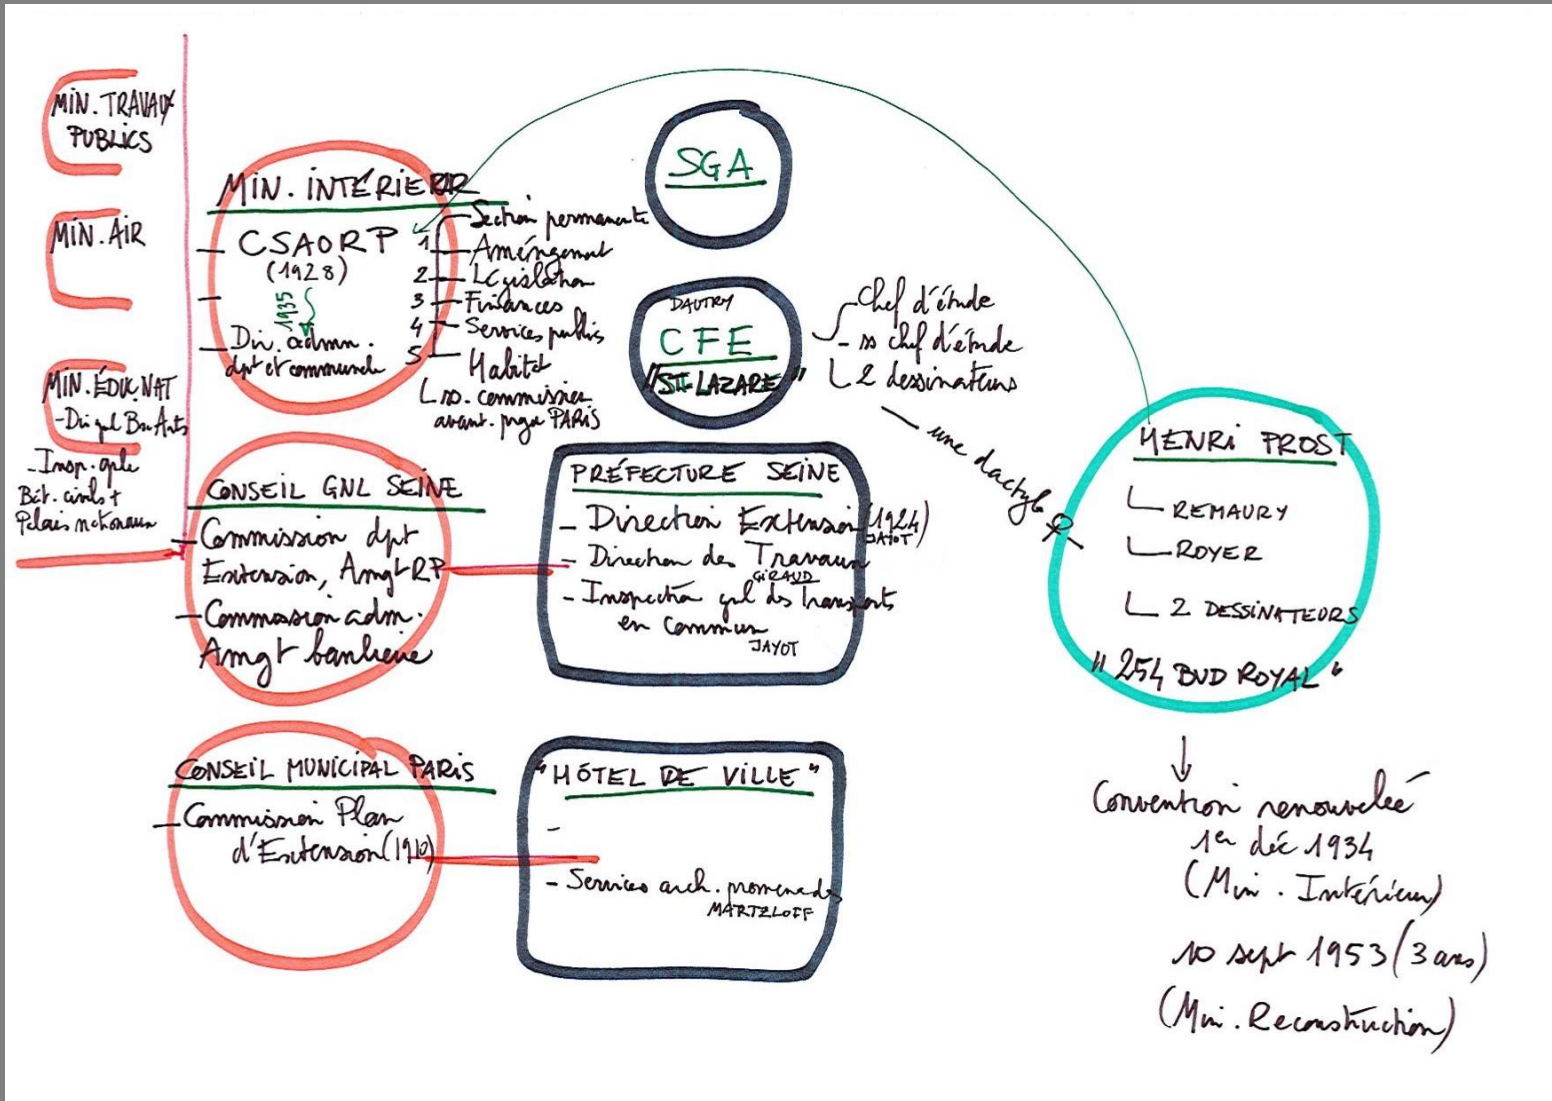 MIN. TRAVAUX
PUBLICS
MIN. AIR
MIN. ÉDUC. NAT
- Dir gnl Bx Arts
- Insp. gnle
Bât. civils +
Palais nationaux
MIN. INTÉRIEUR
CSAORP
(1928)
1935
Dir. admn.
dpt et communale
Section permanente
1 Améngement
2 Législation
3 Finances
4 Services publics
5 Habitat
ss. commission
avant-projet PARIS
SGA
DAUTRY
CFE
"ST-LAZARE"
Chef d'étude
- ss chef d'étude
2 dessinateurs
une dactylo
CONSEIL GNL SEINE
- Commission dpt
Extension, Amgt RP
- Commission adm.
Amgt banlieue
PRÉFECTURE SEINE
- Direction Extension (1924)
JAYOT
- Direction des Travaux
GIRAUD
- Inspection gnl des Transports
en commun
JAYOT
CONSEIL MUNICIPAL PARIS
- Commission Plan
d'Extension (1910)
"HÔTEL DE VILLE"
-
- Services arch. promenades
MARTZLOFF
HENRI PROST
REMAURY
ROYER
2 DESSINATEURS
"254 BVD ROYAL"
Convention renouvelée
1er déc 1934
(Min. Intérieur)
10 sept 1953 (3 ans)
(Min. Reconstruction)